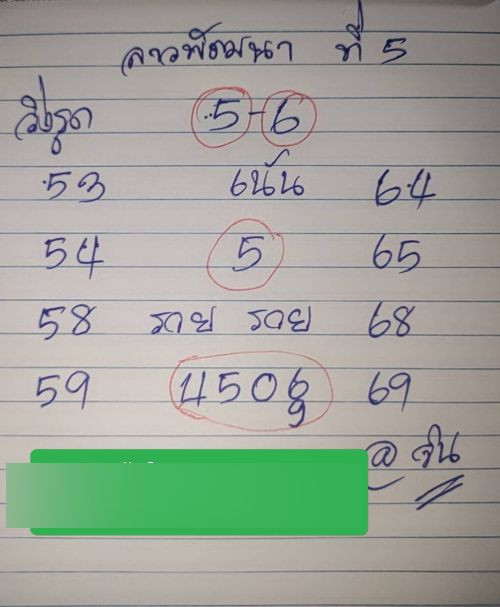 ลาวพัฒนา ที่ 5
วิ่งรูด 5-6
53 เน้น 64
54 5 65
58 รวย รวย 68
59 4506 69
9
@ จัน